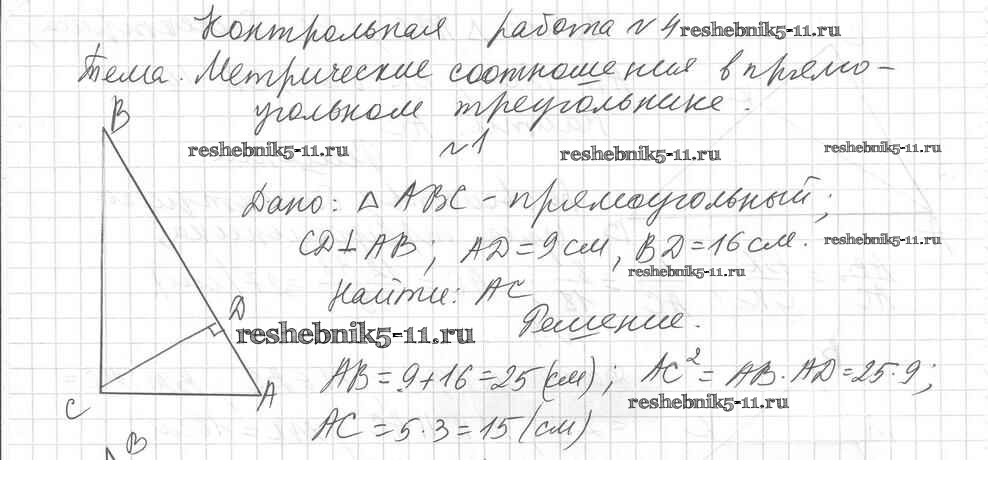 Контрольная работа №4 reshebnik5-11.ru
Тема. Метрические соотношения в прямо-
угольном треугольнике.
B
reshebnik5-11.ru №1 reshebnik5-11.ru reshebnik5-11.ru
Дано: △ ABC - прямоугольный;
CD⊥AB; AD=9см, BD=16см. reshebnik5-11.ru
reshebnik5-11.ru
Найти: AC
D reshebnik5-11.ru Решение.
AB=9+16=25(см); AC²=AB·AD=25·9;
C A reshebnik5-11.ru
AC=5·3=15(см)
B